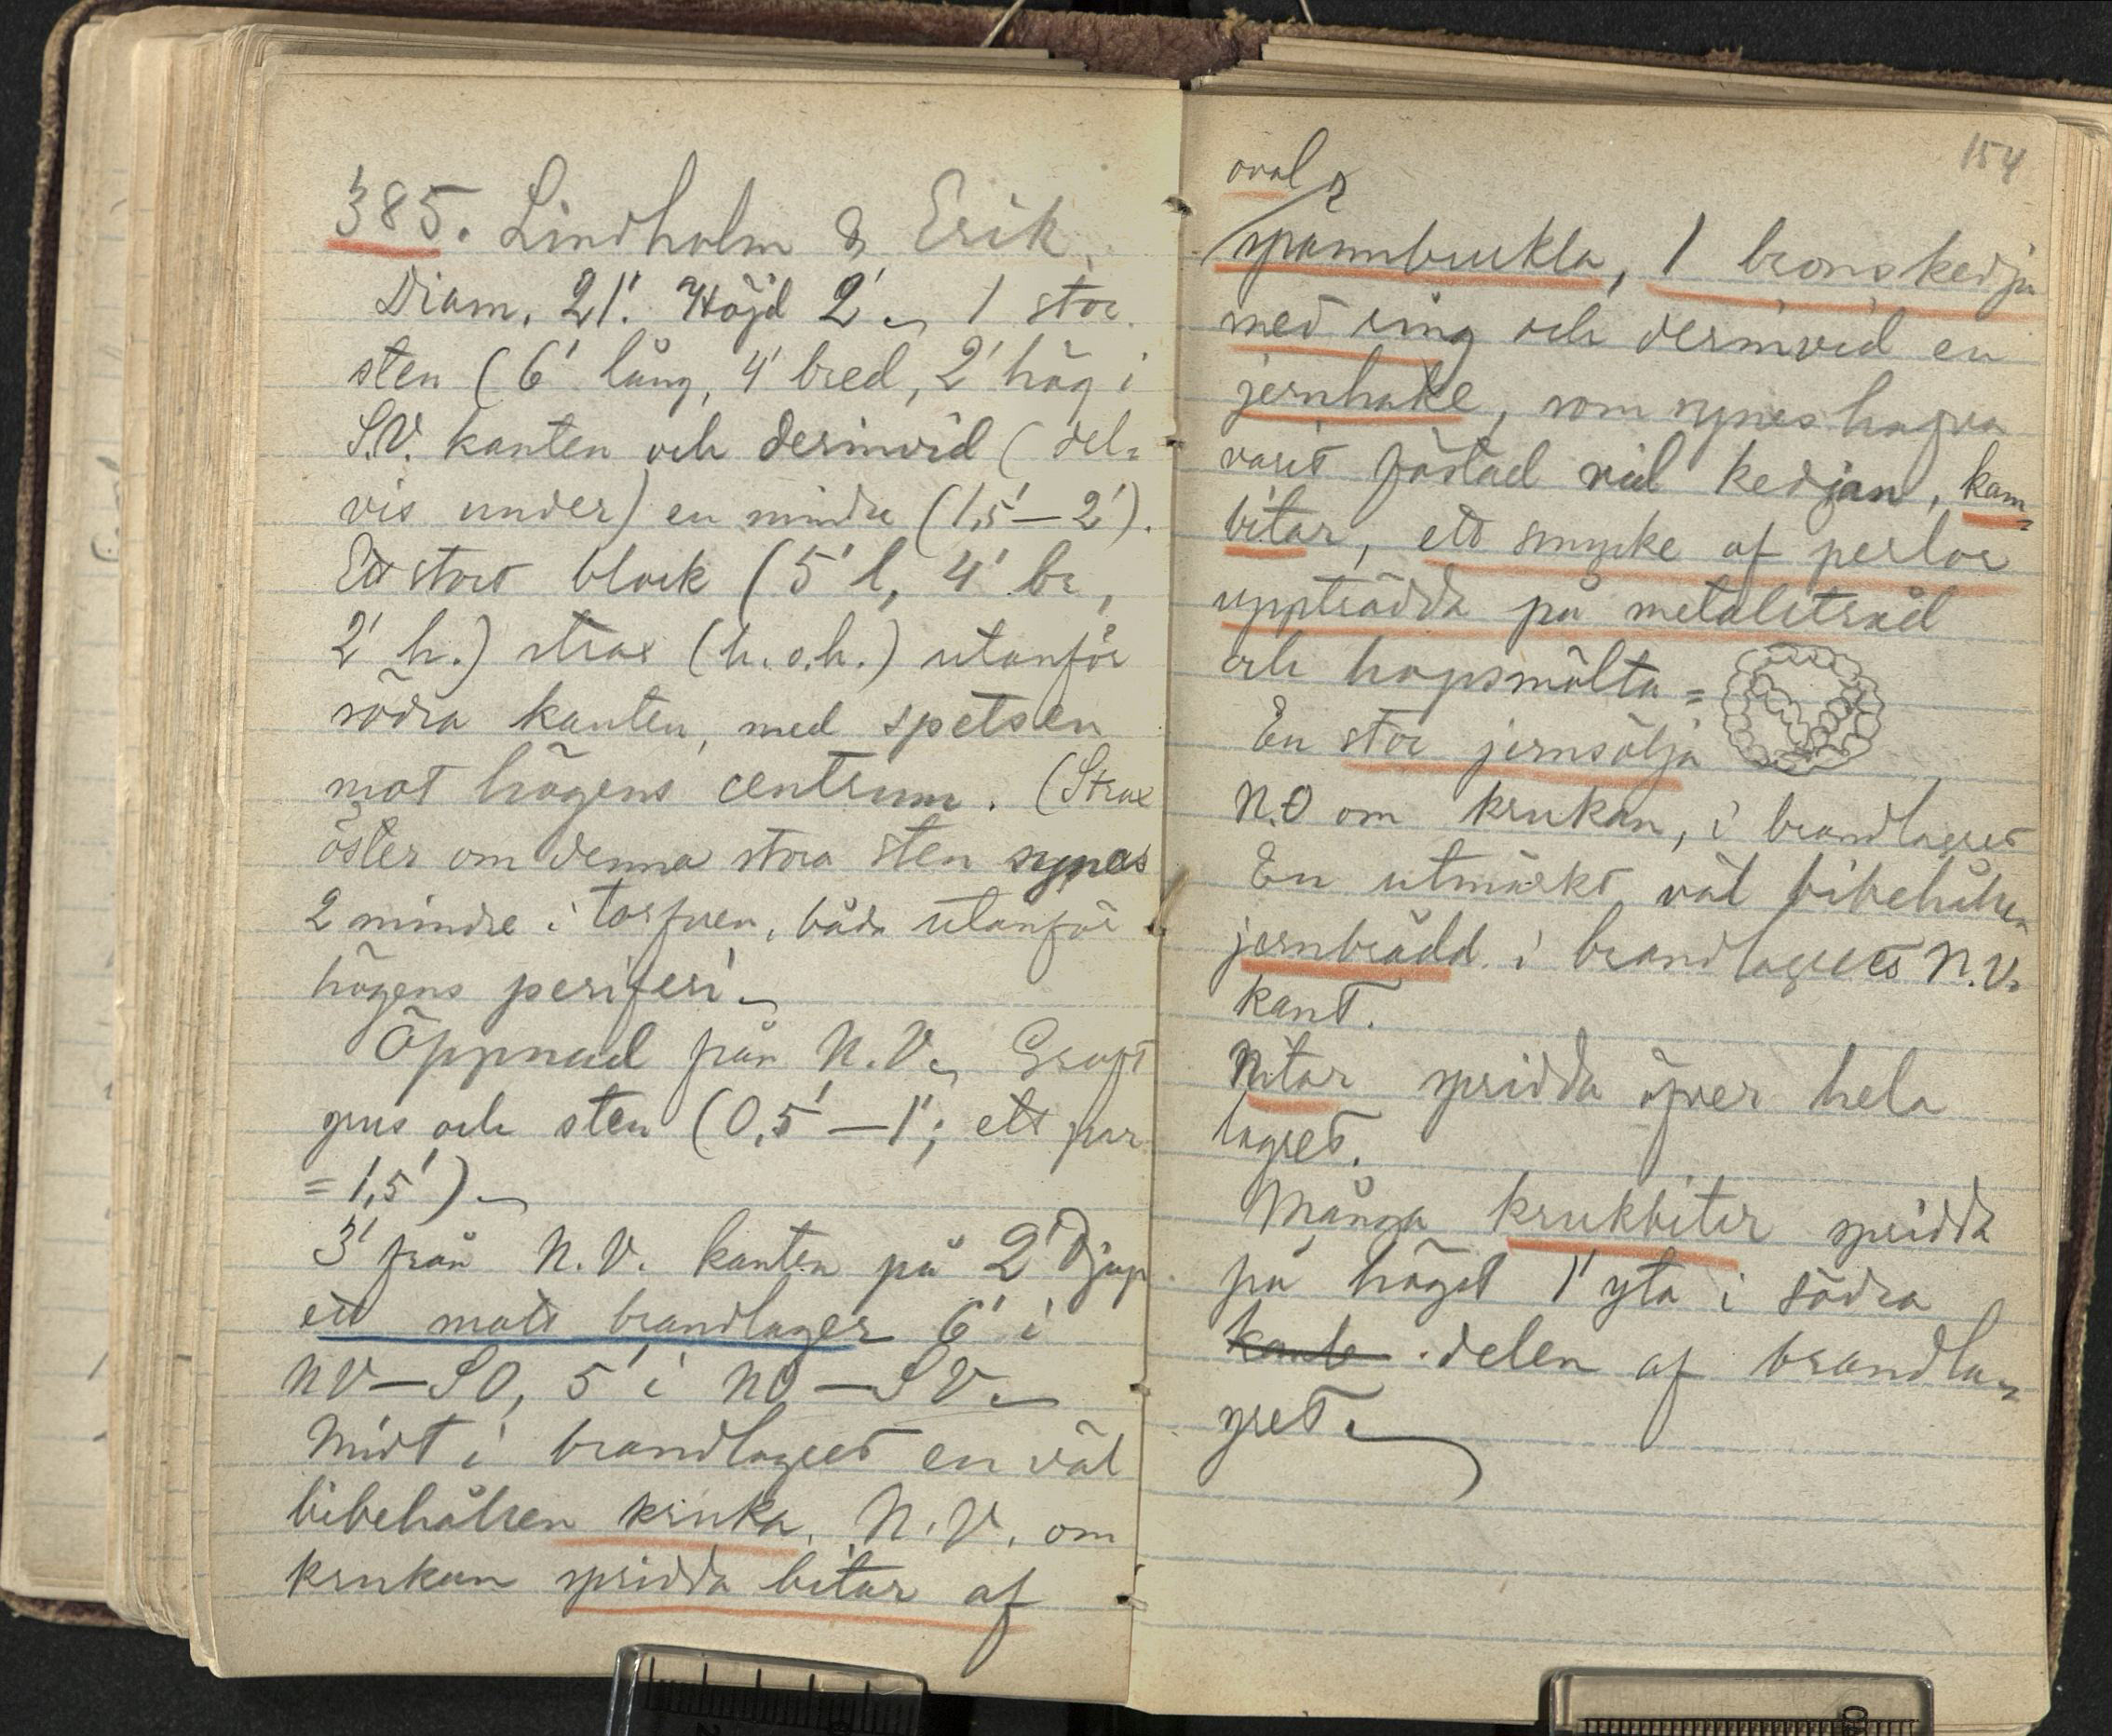 385. Lindholm & Erik.
Diam. 21'. Höjd 2' 1 stor
sten (6' lång, 4' bred, 2' hög i
S.V. kanten och derinvid (del-
vis under) en mindre (1,5'—2').
Ett stort block (5' l, 4' br,
2' h.) strax (h.o.h.) utanför
södra kanten, med spetsen
mot högens centrum. (Strax
öster om denna stora sten synas
2 mindre i torfven, båda utanför
högens periferi.
Öppnad från N.V. Groft
grus och sten (0,5'—1'; ett par
= 1,5').
3' från N.V. kanten på 2' djup
ett matt brandlager 6' i
NV—SO, 5' i NO—SV.
Midt i brandlagret en väl
bibehållen kruka. N.V. om
krukan spridda bitar af
154
oval
spännbuckla, 1 bronskedja
med ring och derinvid en
jernhake, som synes hafva
varit fästad vid kedjan, kam-
bitar, ett smycke af perlor
uppträdda på metalltråd
och hopsmälta =
En stor jernsölja
N.O om krukan, i brandlagret
En utmärkt väl bibehållen
jernbrodd i brandlagrets N.V.
kant.
Nitar spridda öfver hela
lagret.
Många krukbitar spridda
på högst 1' yta i södra
kante delen af brandla-
gret.